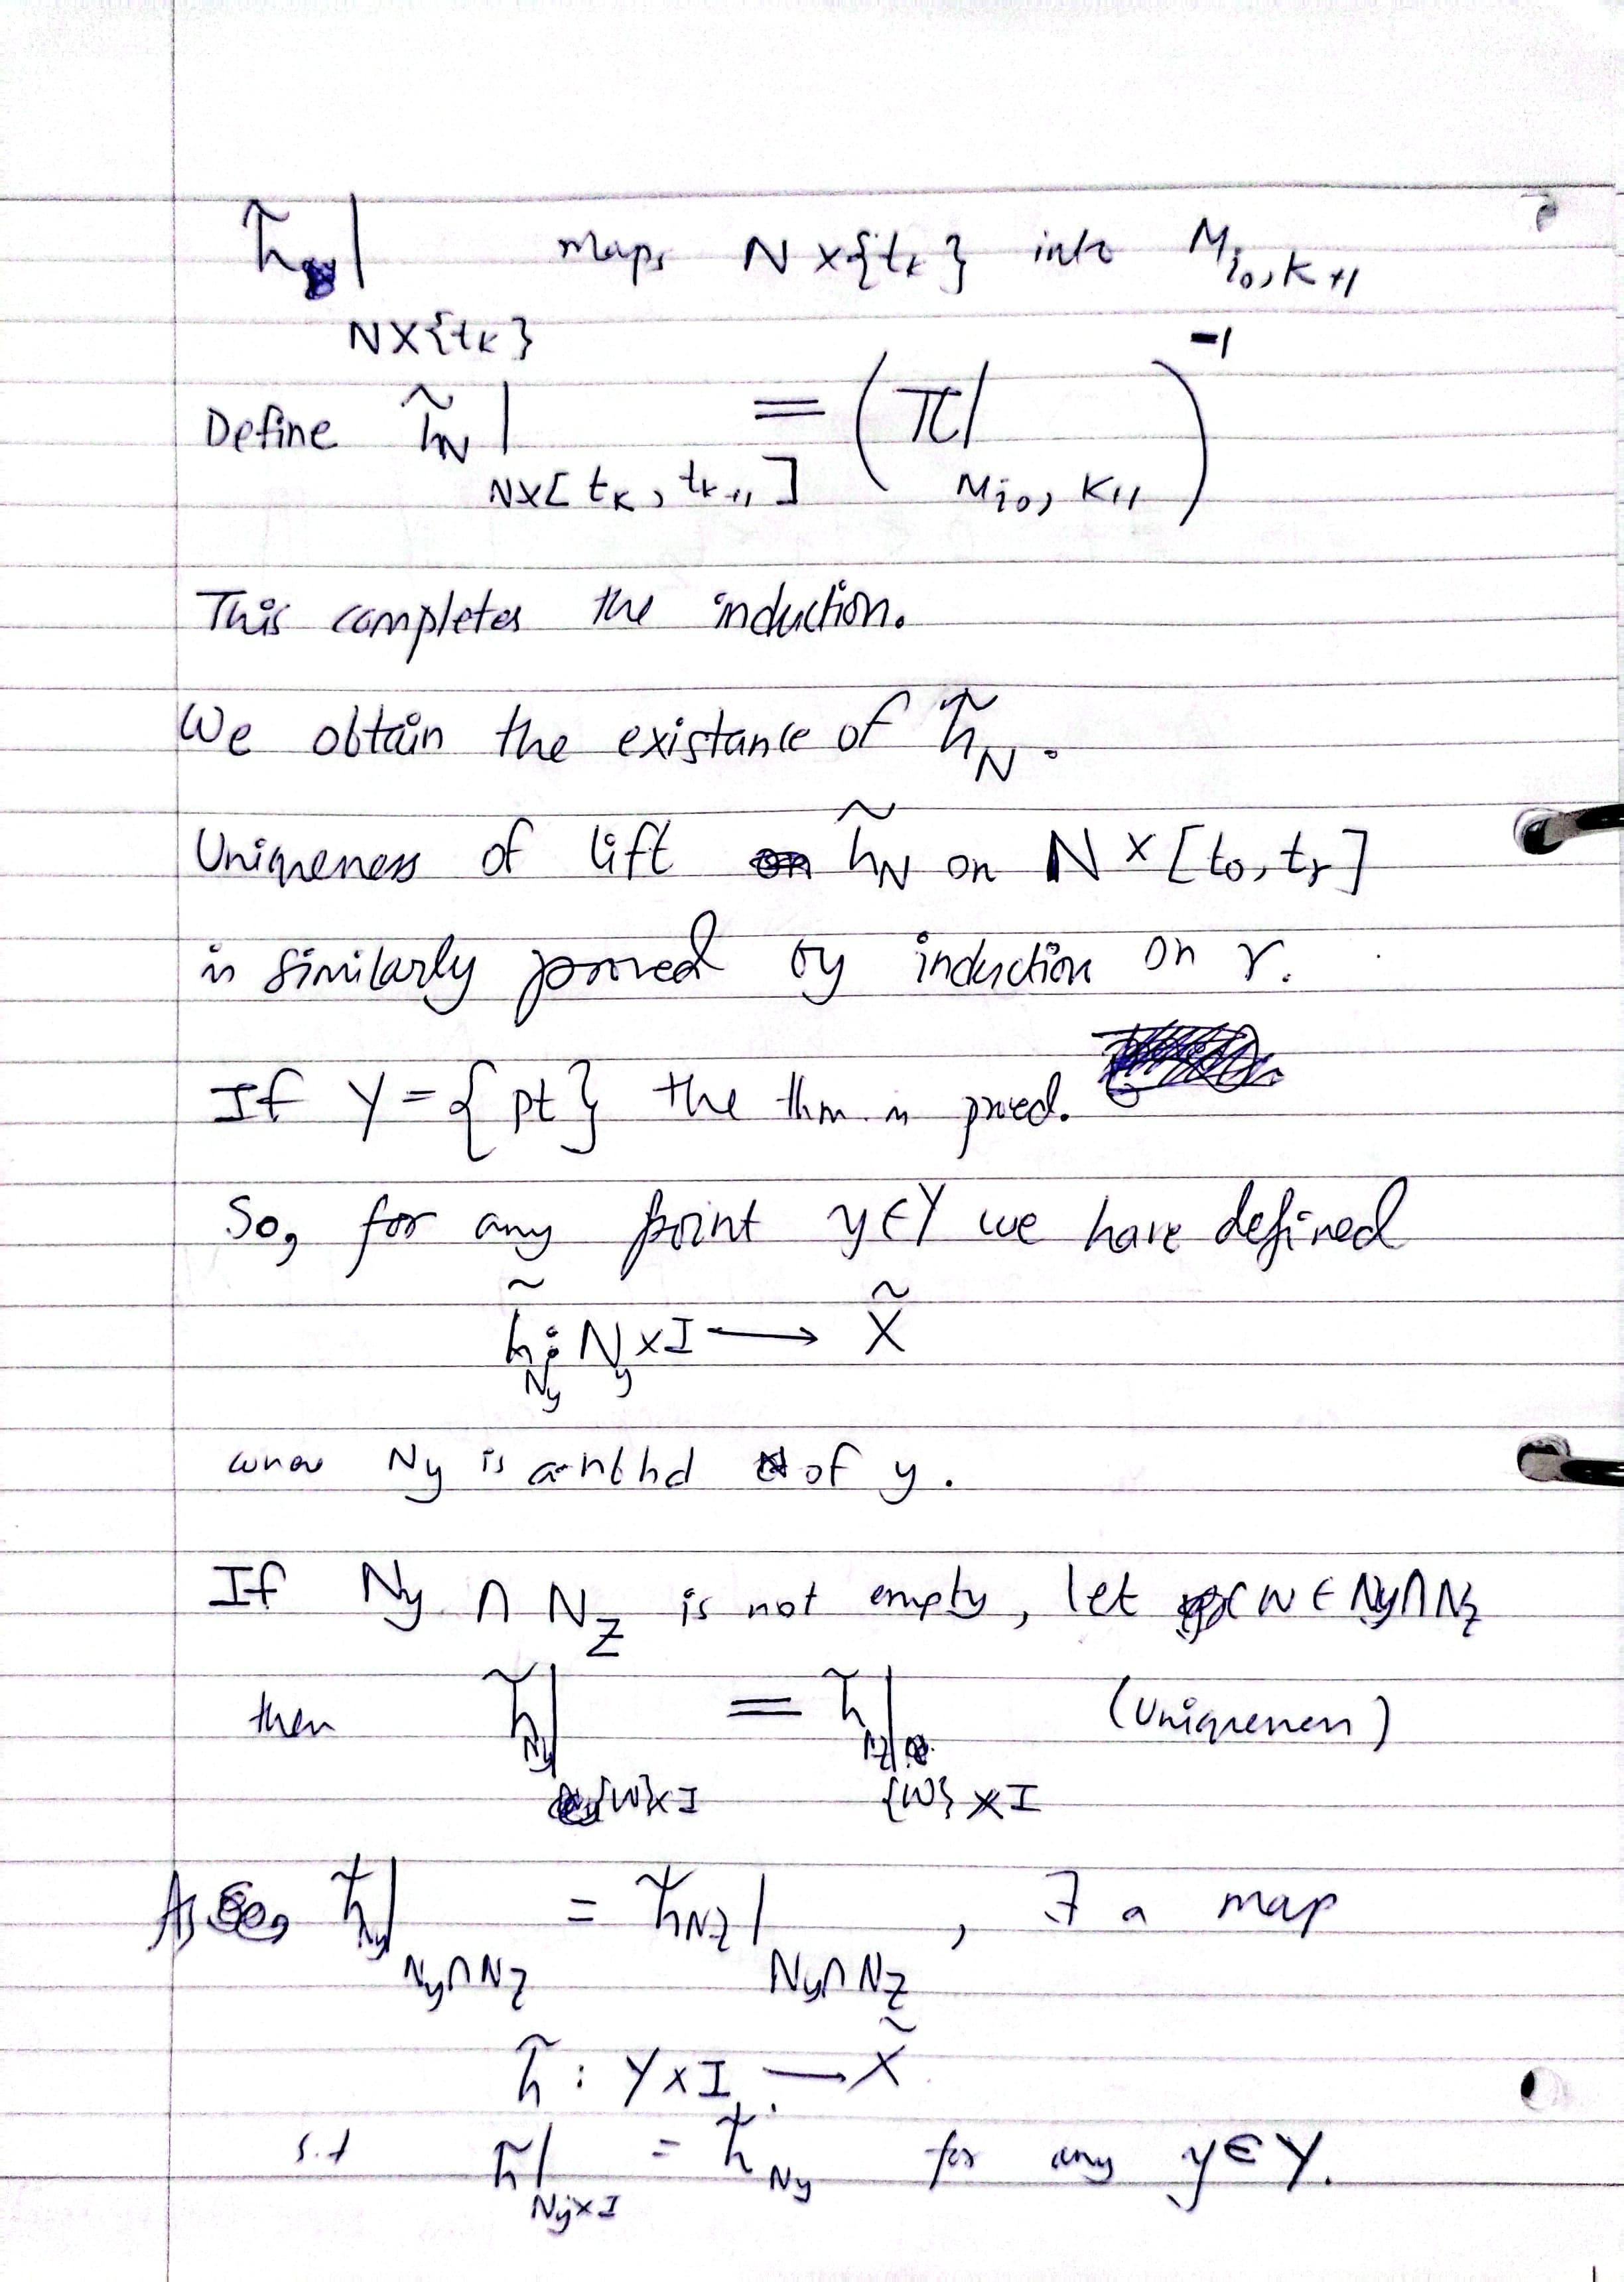 h̃_N | maps N×{t_k} into M_{i_0, k+1}
N×{t_k}
Define h̃_N |_{N×[t_k, t_{k+1}]} = (π|_{M_{i_0, k+1}})^{-1}
This completes the induction.
We obtain the existance of h̃_N.
Uniqueness of lift h̃_N on N×[t_0, t_r]
is similarly proved by induction on r.
If Y = {pt} the thm. is proved.
So, for any point y∈Y we have defined
h̃_{N_y} : N_y×I ⟶ X̃
where N_y is a nbhd of y.
If N_y ∩ N_z is not empty, let w ∈ N_y∩N_z
then h̃_{N_y}|_{{w}×I} = h̃_{N_z}|_{{w}×I} (Uniqueness)
As h̃_{N_y}|_{N_y∩N_z} = h̃_{N_z}|_{N_y∩N_z}, ∃ a map
h̃ : Y×I ⟶ X̃
s.t h̃|_{N_y×I} = h̃_{N_y} for any y∈Y.